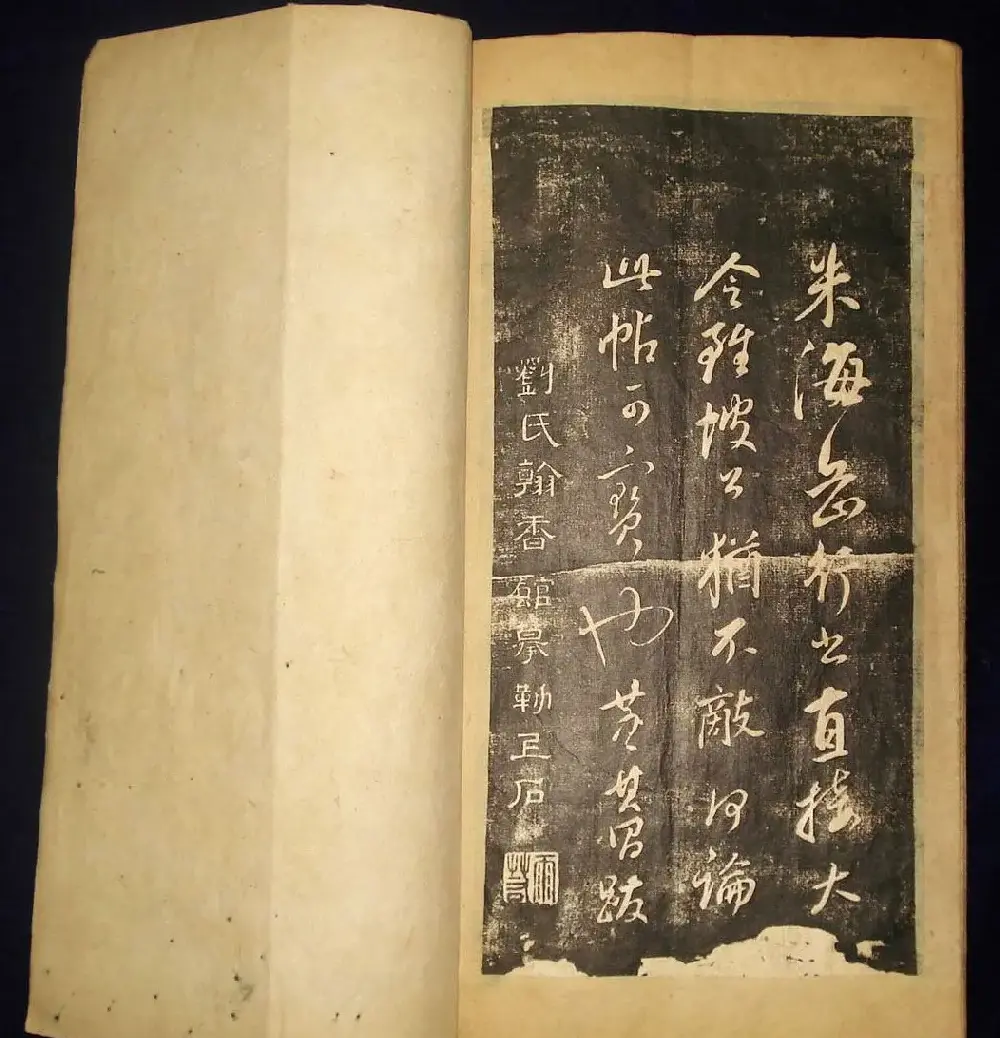 米海岳行书直接大
令雖坡公猶不敵何論
此帖可寶也董其昌跋
劉氏翰香館摹勒上石